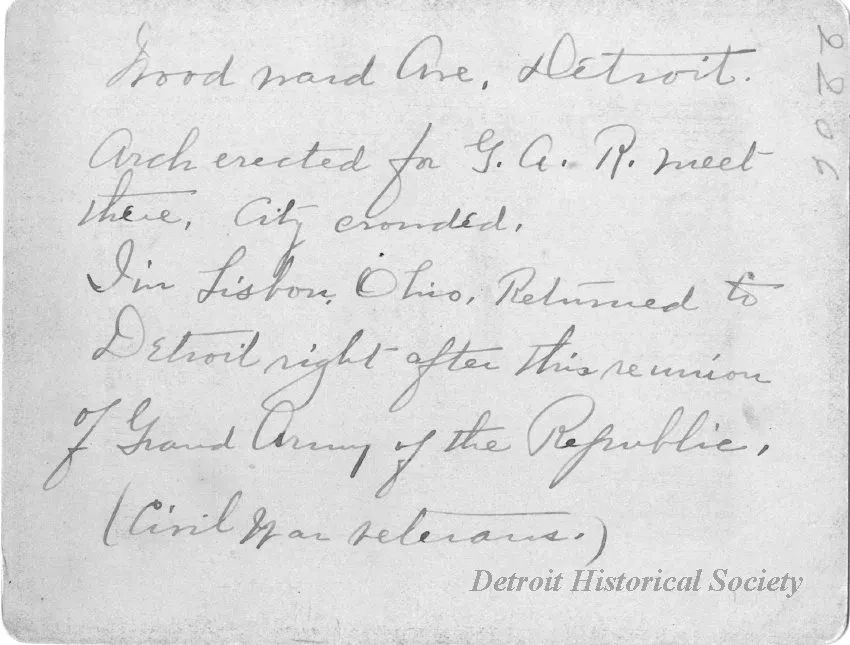 Wood ward Ave, Detroit.
Arch erected for G. A. R. meet
there, City crowded.
I in Lisbon, Ohio, Returned to
Detroit right after this reunion
of Grand Army of the Republic,
(Civil War veterans.)
2206
Detroit Historical Society